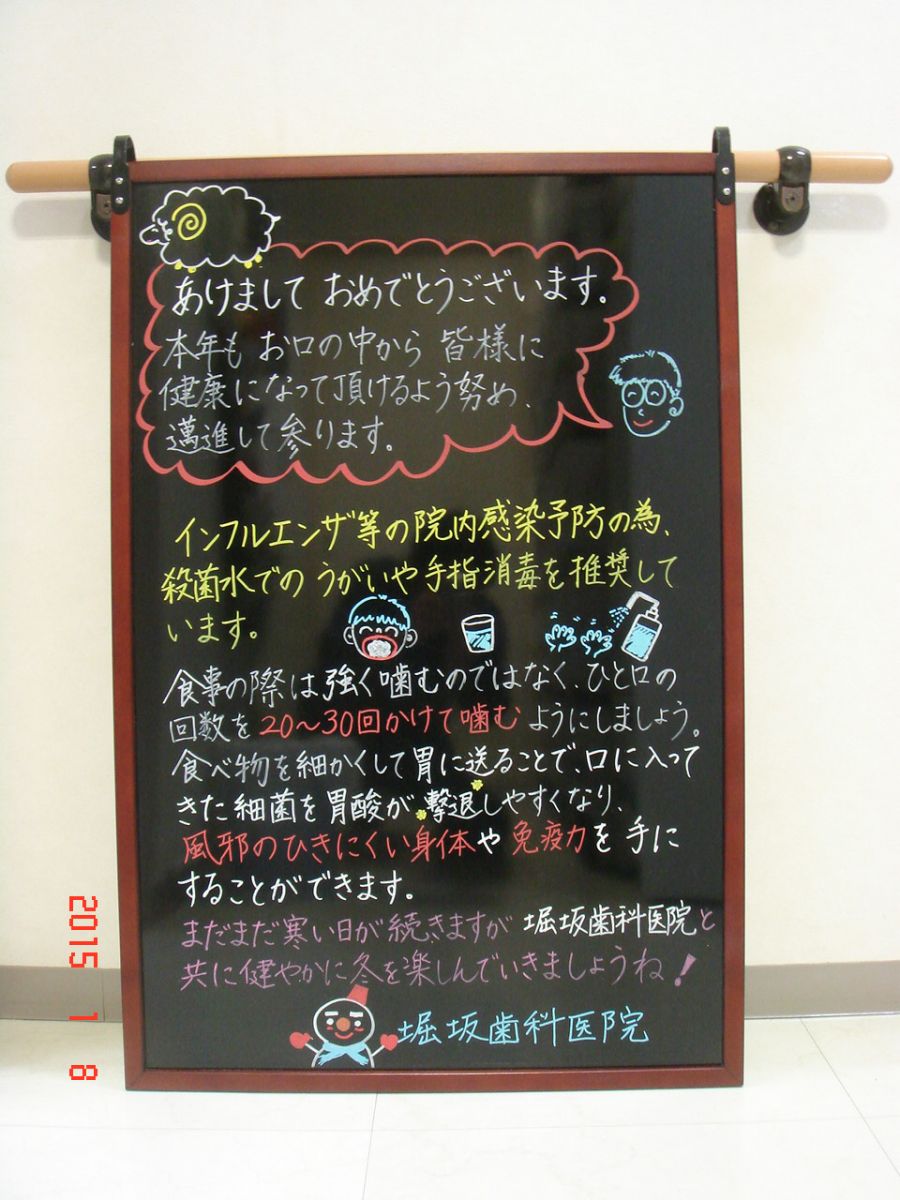 あけまして おめでとうございます。
本年も お口の中から 皆様に
健康になって頂けるよう努め、
邁進して参ります。
インフルエンザ等の院内感染予防の為、
殺菌水での うがいや手指消毒を推奨して
います。
食事の際は強く噛むのではなく、ひと口の
回数を20〜30回かけて噛むようにしましょう。
食べ物を細かくして胃に送ることで、口に入って
きた細菌を胃酸が撃退しやすくなり、
風邪のひきにくい身体や免疫力を手に
することができます。
まだまだ寒い日が続きますが 堀坂歯科医院と
共に健やかに冬を楽しんでいきましょうね!
堀坂歯科医院
2015 1 8